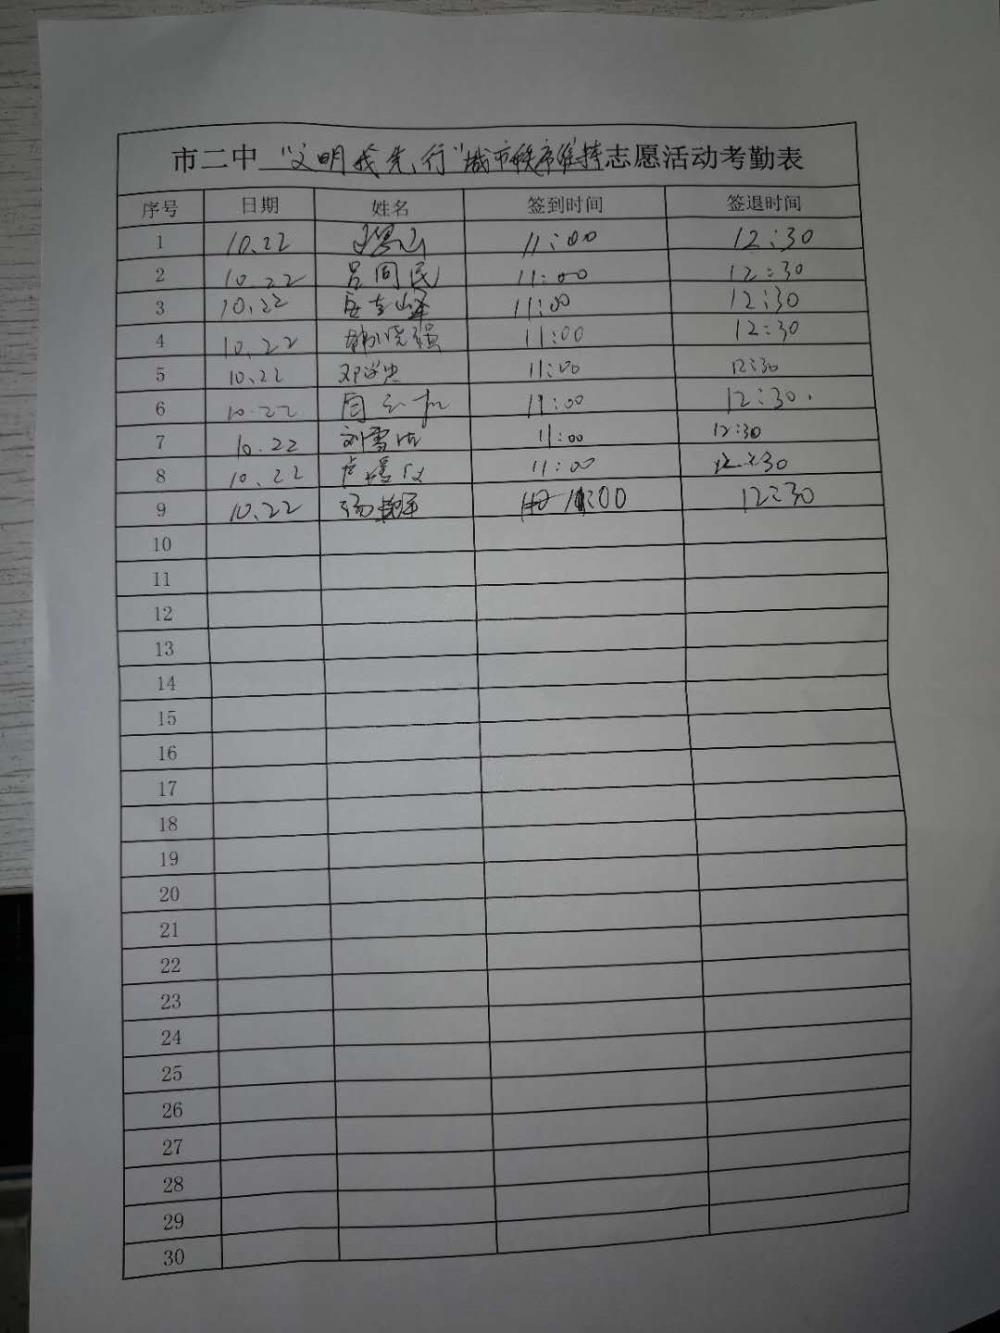 市二中 "文明我先行"城市秩序维持志愿活动考勤表
序号 日期 姓名 签到时间 签退时间
1 10.22 11:00 12:30
2 10.22 吕同民 11:00 12:30
3 10.22 11:00 12:30
4 10.22 韩晓强 11:00 12:30
5 10.22 邓学忠 11:00 12:30
6 10.22 11:00 12:30
7 10.22 刘雪 11:00 12:30
8 10.22 卢 11:00 12:30
9 10.22 11:00 12:30
10
11
12
13
14
15
16
17
18
19
20
21
22
23
24
25
26
27
28
29
30